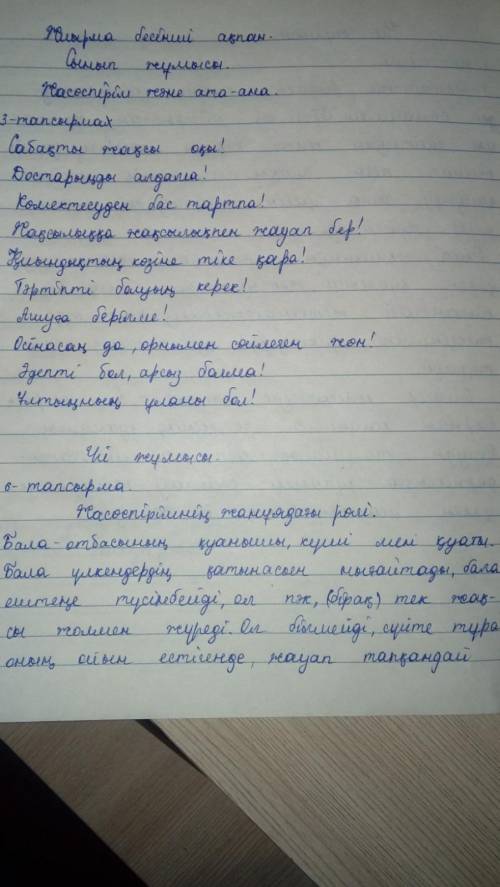 Жиырма бесінші ақпан.
Сынып жұмысы.
Жасөспірім және ата-ана.
3-тапсырмах
Сабақты жақсы оқы!
Достарыңды алдама!
Көмектесуден бас тартпа!
Жақсылыққа жақсылықпен жауап бер!
Қиындықтың көзіне тіке қара!
Тәртіпті болуың керек!
Ашуға берілме!
Ойнасаң да, орнымен сөйлеген жөн!
Әдепті бол, арсыз болма!
Ұлтыңның ұланы бол!
Үй жұмысы.
6-тапсырма.
Жасөспірімнің жанұядағы рөлі.
Бала-отбасының қуанышы, күші мен қуаты.
Бала үлкендердің қатынасын нығайтады, бала
ештеңе түсінбейді, ол пәк, (бірақ) тек жақ-
сы жолмен жүреді. Ол білмейді, сүйте тұра
оның ойын естігенде, жауап тапқандай